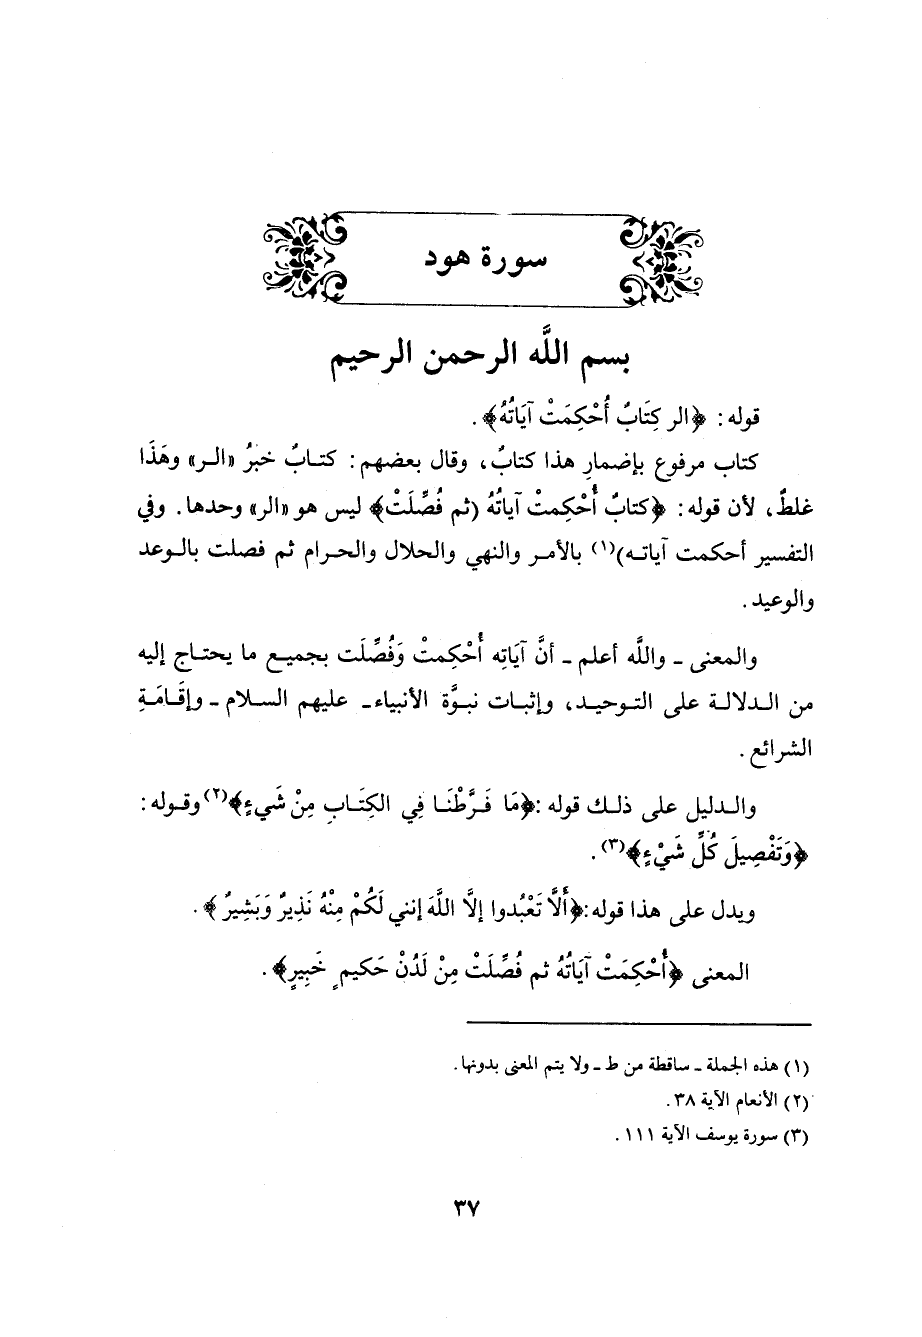 سورة هود
بسم اللَّه الرحمن الرحيم
قوله: ﴿الر كِتَابٌ أُحْكِمَتْ آيَاتُهُ﴾.
كتاب مرفوع بإضمارِ هذا كتابٌ، وقال بعضهم: كتابٌ خبرُ «الر» وهَذَا
غلطٌ، لأن قوله: ﴿كتابٌ أُحْكِمتْ آياتُهُ (ثم فُصِّلَتْ﴾ ليس هو «الر» وحدها. وفي
التفسير أحكمت آياته)(١) بالأمر والنهي والحلال والحرام ثم فصلت بالوعد
والوعيد.
والمعنى - واللَّه أعلم - أنَّ آيَاتِه أُحْكِمتْ وَفُصِّلَت بجميع ما يحتاج إليه
من الدلالة على التوحيد، وإثبات نبوَّة الأنبياء - عليهم السلام - وإقَامَةِ
الشرائع.
والدليل على ذلك قوله: ﴿مَا فَرَّطْنَا فِي الكِتَابِ مِنْ شَيءٍ﴾(٢) وقوله:
﴿وَتَفْصِيلَ كُلِّ شَيْءٍ﴾(٣).
ويدل على هذا قوله: ﴿أَلَّا تَعْبُدوا إلَّا اللَّهَ إنني لَكُمْ مِنْهُ نَذِيرٌ وَبَشِيرٌ﴾.
المعنى ﴿أُحْكِمَتْ آيَاتُهُ ثم فُصِّلَتْ مِنْ لَدُنْ حَكيمٍ خَبِيرٍ﴾.
(١) هذه الجملة - ساقطة من ط - ولا يتم المعنى بدونها.
(٢) الأنعام الآية ٣٨.
(٣) سورة يوسف الآية ١١١.
٣٧